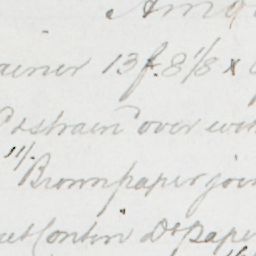 Amo
ainer 13 f. 8 1/8 x
& strain over with
11/.
Brown paper join
Do pape